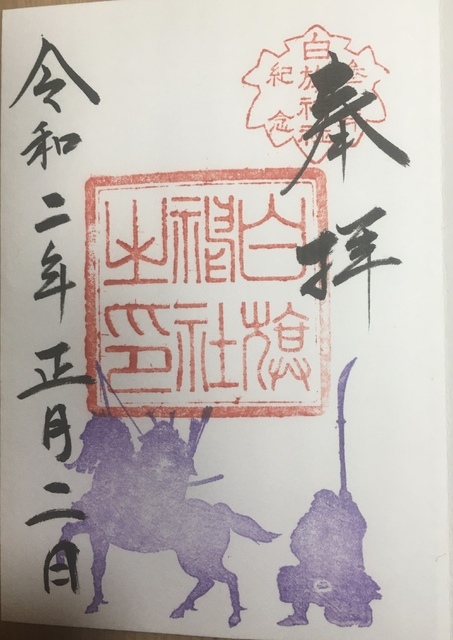 奉拝
白旗神社
紀念
白旗
神社
之印
令和二年正月二日